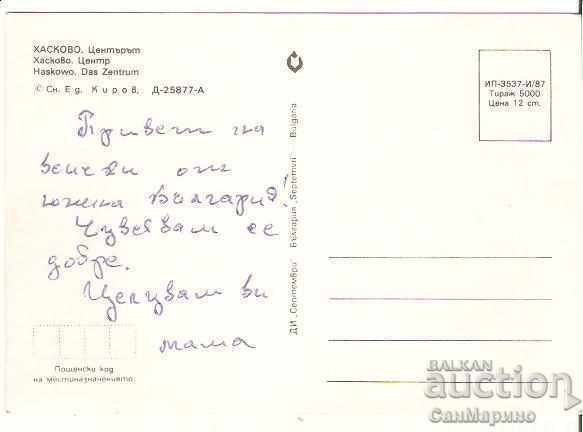 ХАСКОВО. Центърът
Хасково. Центр
Haskowo. Das Zentrum
© Сн. Ед. Киров, Д-25877-А
Привет на
всички от
южна България!
Чувствам се
добре.
Целувам ви
мама
Пощенски код
на местоназначението
ДИ „Септември“ България „Septemvri“ Bulgaria
ИП-3537-И/87
Тираж 5000
Цена 12 ст.
BALKAN
auction
СанМарино